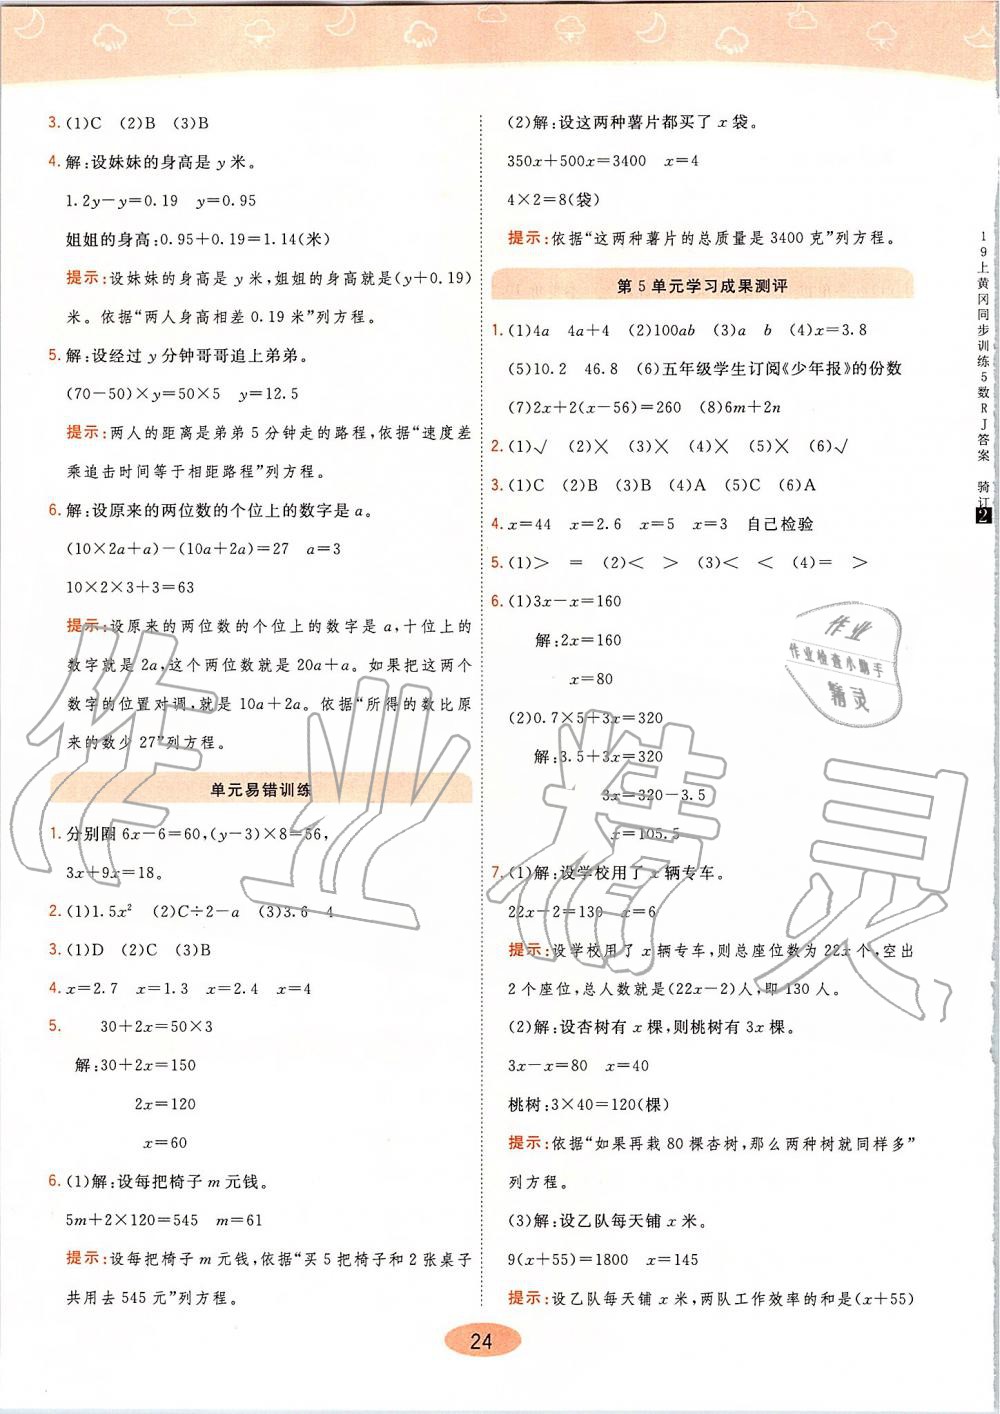 3. (1)C (2)B (3)B
4. 解:设妹妹的身高是 y 米。
1.2y－y＝0.19 y＝0.95
姐姐的身高:0.95＋0.19＝1.14(米)
提示:设妹妹的身高是 y 米,姐姐的身高就是(y＋0.19)
米。依据“两人身高相差 0.19 米”列方程。
5. 解:设经过 y 分钟哥哥追上弟弟。
(70－50)×y＝50×5 y＝12.5
提示:两人的距离是弟弟 5 分钟走的路程,依据“速度差
乘追击时间等于相距路程”列方程。
6. 解:设原来的两位数的个位上的数字是 a。
(10×2a＋a)－(10a＋2a)＝27 a＝3
10×2×3＋3＝63
提示:设原来的两位数的个位上的数字是 a,十位上的
数字就是 2a,这个两位数就是 20a＋a。如果把这两个
数字的位置对调,就是 10a＋2a。依据“所得的数比原
来的数少 27”列方程。
单元易错训练
1. 分别圈 6x－6＝60,(y－3)×8＝56,
3x＋9x＝18。
2. (1)1.5x² (2)C÷2－a (3)3.6 4
3. (1)D (2)C (3)B
4. x＝2.7 x＝1.3 x＝2.4 x＝4
5. 30＋2x＝50×3
解:30＋2x＝150
2x＝120
x＝60
6. (1)解:设每把椅子 m 元钱。
5m＋2×120＝545 m＝61
提示:设每把椅子 m 元钱,依据“买 5 把椅子和 2 张桌子
共用去 545 元”列方程。
(2)解:设这两种薯片都买了 x 袋。
350x＋500x＝3400 x＝4
4×2＝8(袋)
提示:依据“这两种薯片的总质量是 3400 克”列方程。
第 5 单元学习成果测评
1. (1)4a 4a＋4 (2)100ab (3)a b (4)x＝3.8
(5)10.2 46.8 (6)五年级学生订阅《少年报》的份数
(7)2x＋2(x－56)＝260 (8)6m＋2n
2. (1)√ (2)× (3)× (4)× (5)× (6)√
3. (1)C (2)B (3)B (4)A (5)C (6)A
4. x＝44 x＝2.6 x＝5 x＝3 自己检验
5. (1)＞ ＝ (2)＜ ＞ (3)＜ ＜ (4)＝ ＞
6. (1)3x－x＝160
解:2x＝160
x＝80
(2)0.7×5＋3x＝320
解:3.5＋3x＝320
3x＝320－3.5
x＝105.5
7. (1)解:设学校用了 x 辆专车。
22x－2＝130 x＝6
提示:设学校用了 x 辆专车,则总座位数为 22x 个,空出
2 个座位,总人数就是(22x－2)人,即 130 人。
(2)解:设杏树有 x 棵,则桃树有 3x 棵。
3x－x＝80 x＝40
桃树:3×40＝120(棵)
提示:依据“如果再栽 80 棵杏树,那么两种树就同样多”
列方程。
(3)解:设乙队每天铺 x 米。
9(x＋55)＝1800 x＝145
提示:设乙队每天铺 x 米,两队工作效率的和是(x＋55)
24
19上黄冈同步训练5数RJ答案 骑订2
作业
作业检查小助手
精灵
作业精灵